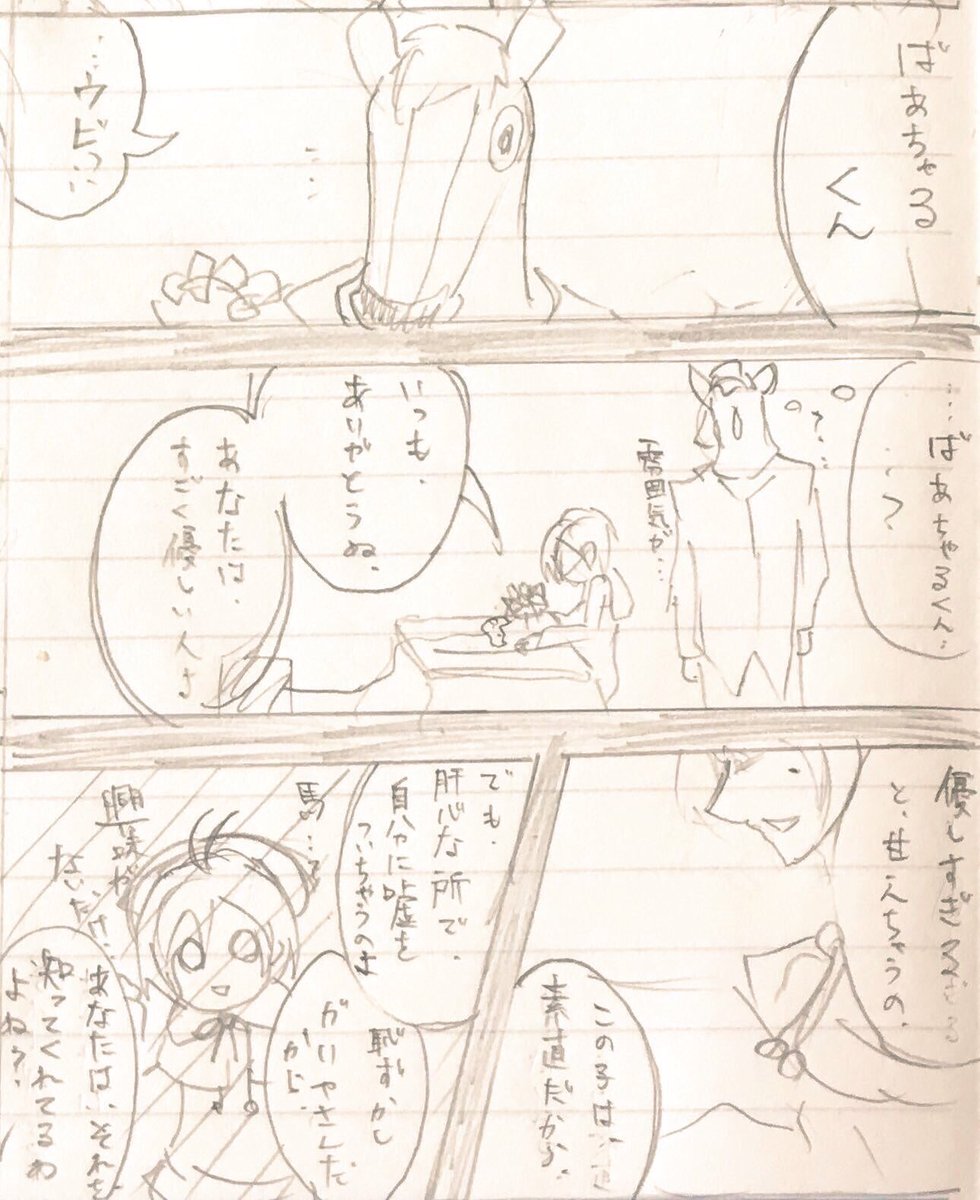 ばあちゃる
くん
…ウビィ
…ばあちゃるくん…
…？
？…
雰囲気が…
いつも、
ありがとうね、
あなたは、
すごく優しい人よ
優しすぎる
と、甘えちゃうの、
この子は、
素直だから、
でも、
肝心な所で、
自分に嘘を
ついちゃうのよ
恥ずかし
がりやさんだ
から、
馬…？
興味が
ないだけ…
あなたは、それを
知ってくれてるわ
よね？